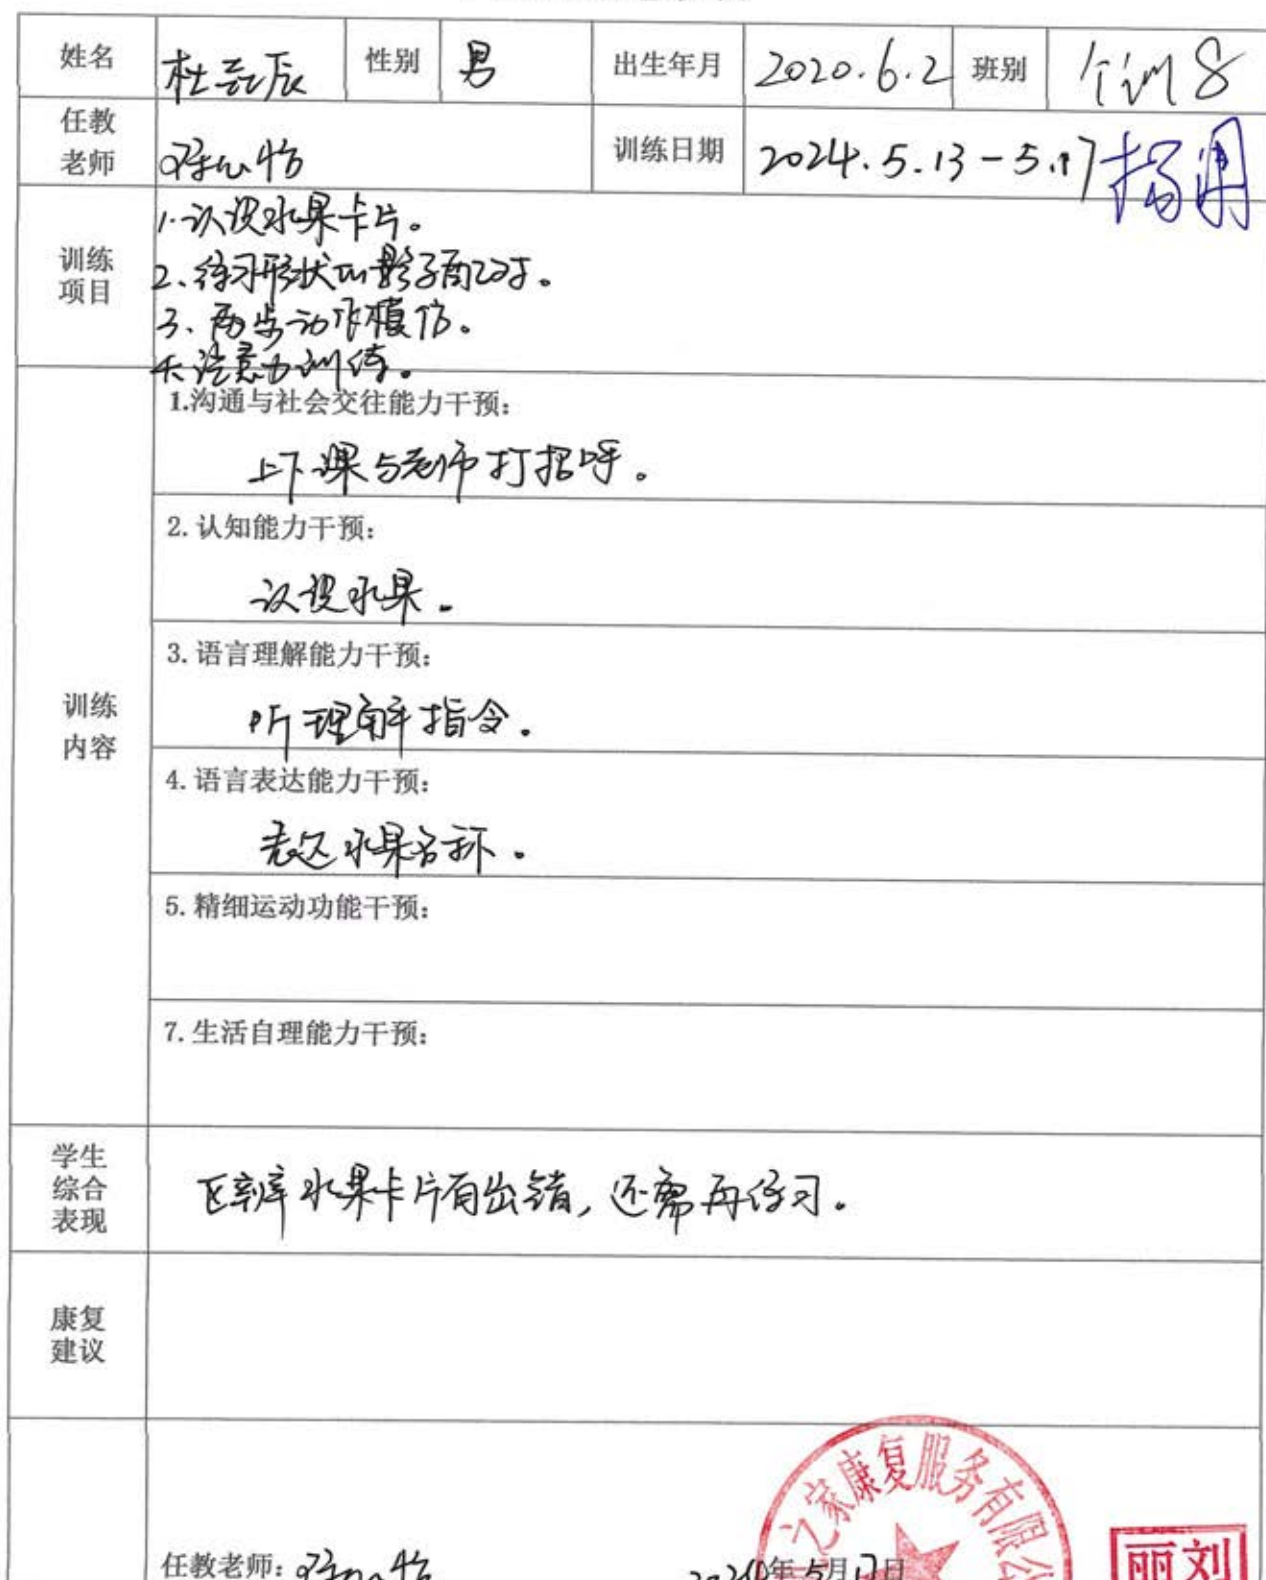 姓名 杜云辰 性别 男 出生年月 2020.6.2 班别 个训8
任教老师 训练日期 2024.5.13-5.17
训练项目
1.认识水果卡片。
2、练习形状的影子配对。
3、两步动作模仿。
4.注意力训练。
训练内容
1.沟通与社会交往能力干预：
上下课与老师打招呼。
2.认知能力干预：
认识水果。
3.语言理解能力干预：
听理解指令。
4.语言表达能力干预：
表达水果名称。
5.精细运动功能干预：
7.生活自理能力干预：
学生综合表现
区辨水果卡片有出错，还需再练习。
康复建议
之家康复服务有限公
任教老师： 2024年5月17日
丽刘